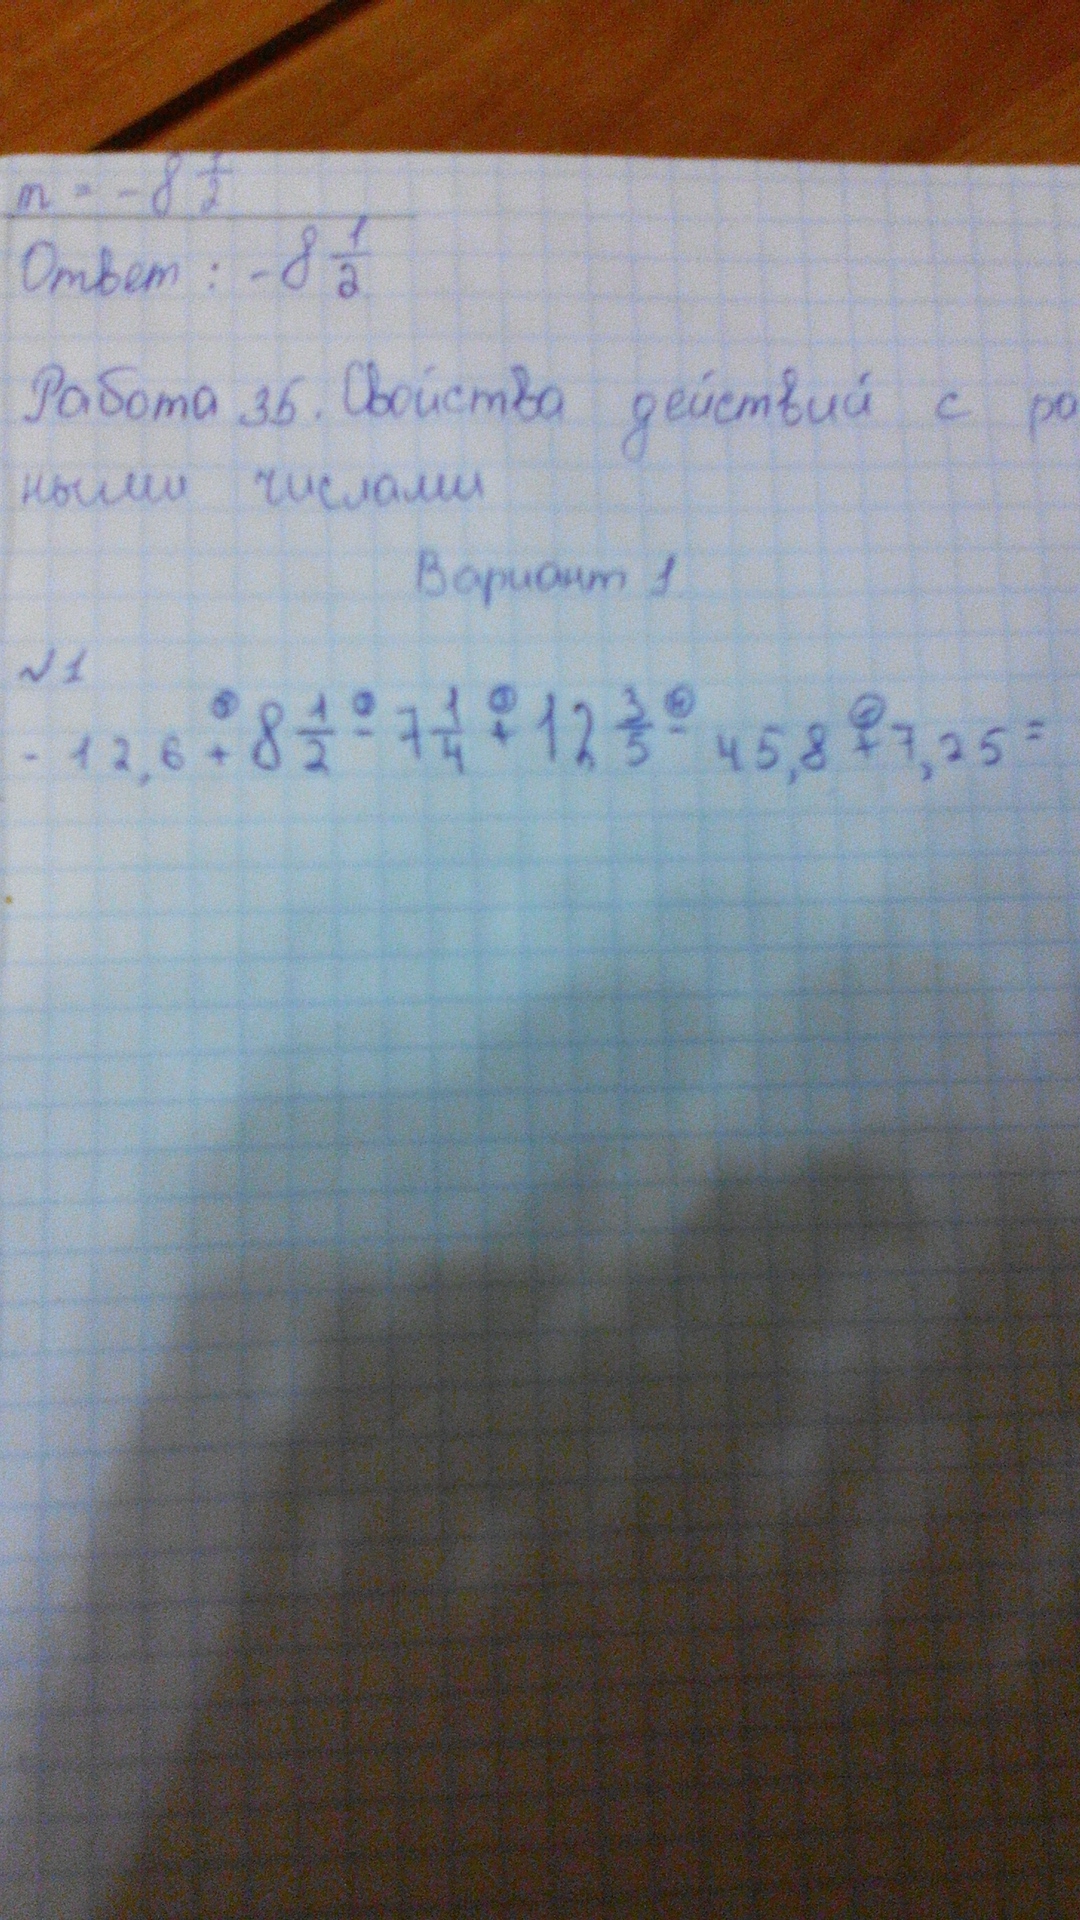 m = -8 1/2
Ответ: -8 1/2
Работа 35. Свойства действий с ра
ными числами
Вариант 1
№1
- 12,6 + 8 1/2 - 7 1/4 + 12 3/5 - 45,8 + 7,25 =